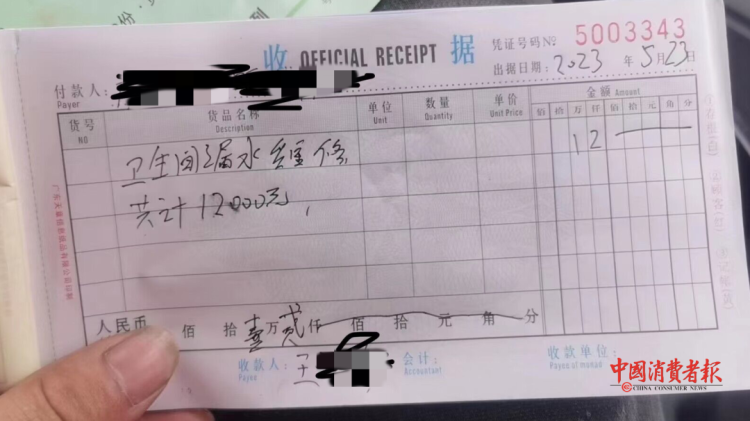 收 OFFICIAL RECEIPT 据
凭证号码№ 5003343
出据日期：2023 年 5 月 23 日
付款人：
Payer
货号 货品名称 单位 数量 单价 金额 Amount
NO Description Unit Quantity Unit Price 佰 拾 万 仟 佰 拾 元 角 分
卫生间漏水维修 1 2
共计12000元
人民币 佰 拾 壹万 贰仟 佰 拾 元 角 分
收款人： 会计： 收款单位：
Payee Accountant
中國消費者報
CHINA CONSUMER NEWS